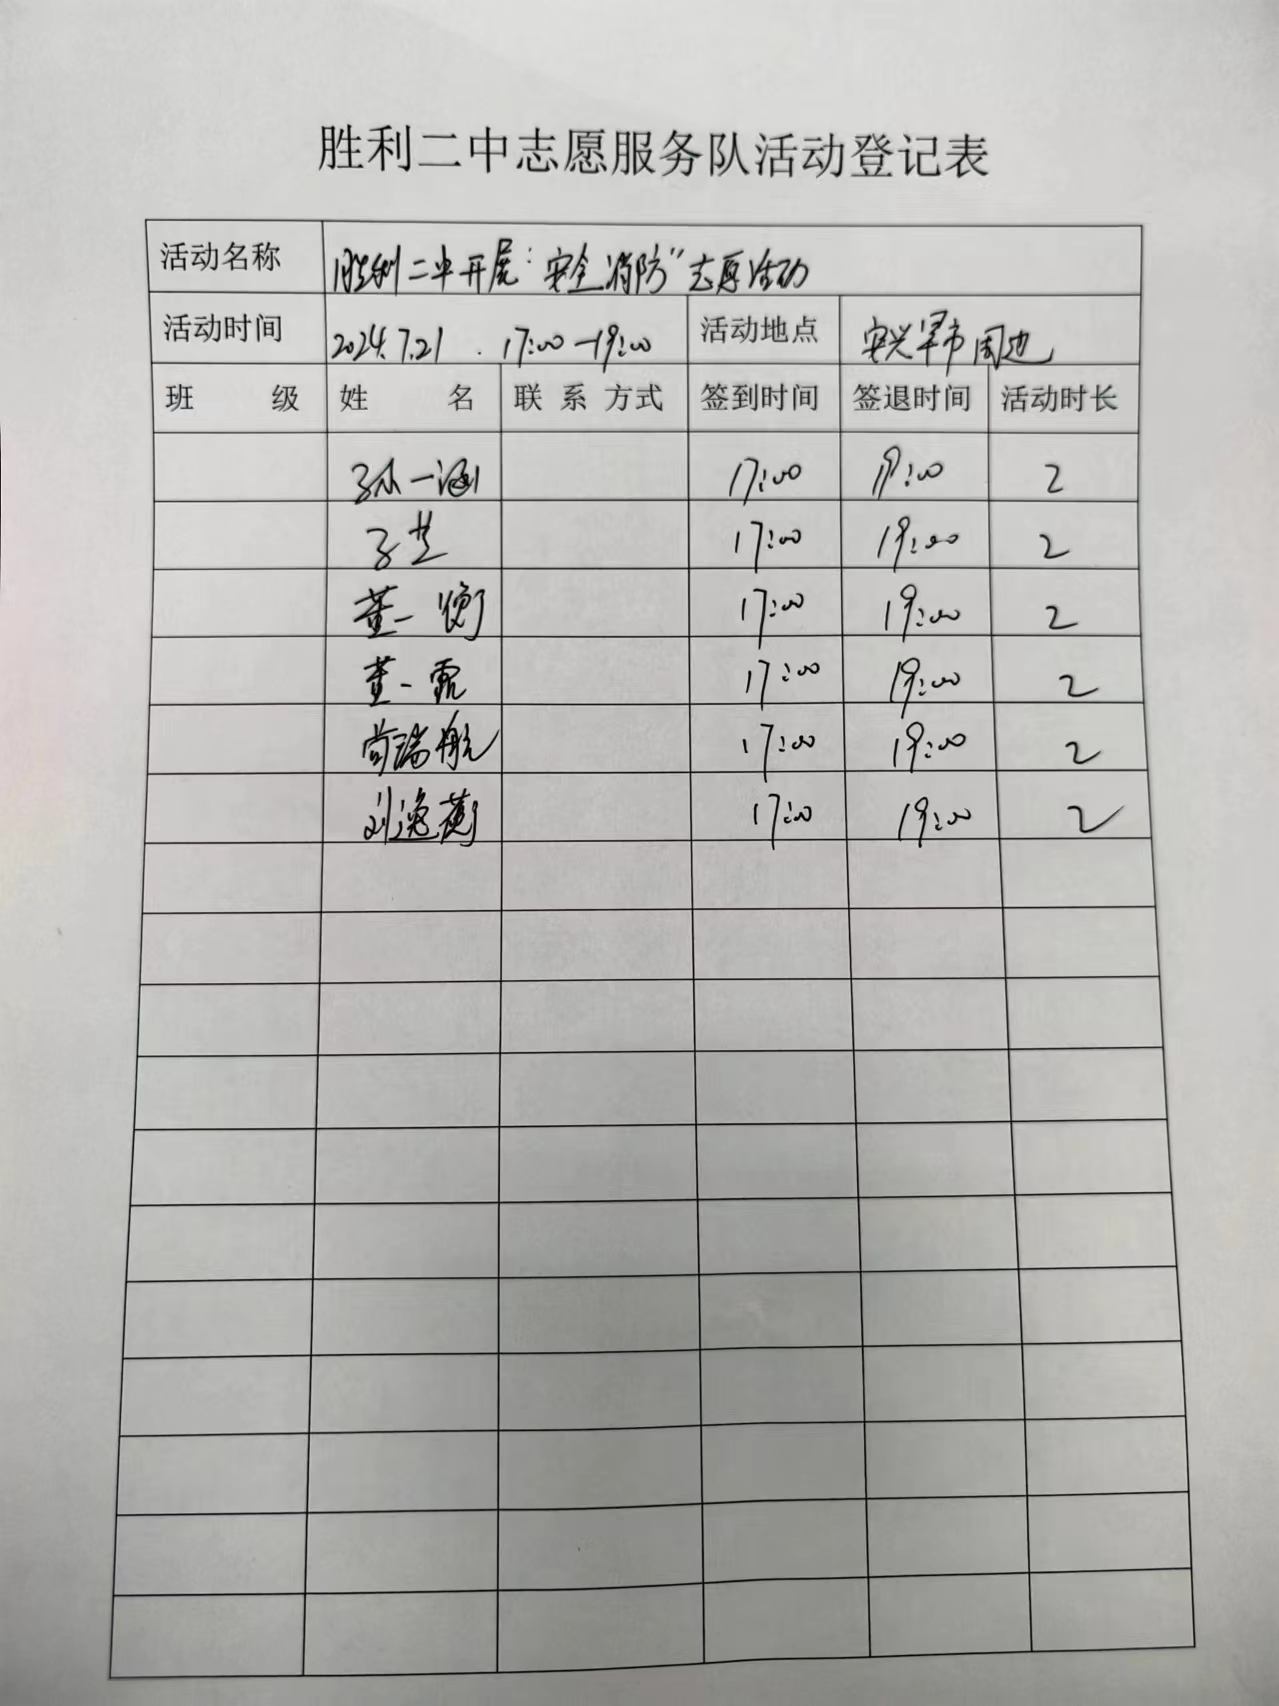 胜利二中志愿服务队活动登记表
活动名称 胜利二中开展“安全消防”志愿活动
活动时间 2024.7.21. 17:00-19:00 活动地点 安兴早市周边
班 级 姓 名 联 系 方式 签到时间 签退时间 活动时长
孙一涵 17:00 19:00 2
17:00 19:00 2
董一 17:00 19:00 2
董一霏 17:00 19:00 2
尚瑞航 17:00 19:00 2
刘逸蘅 17:00 19:00 2